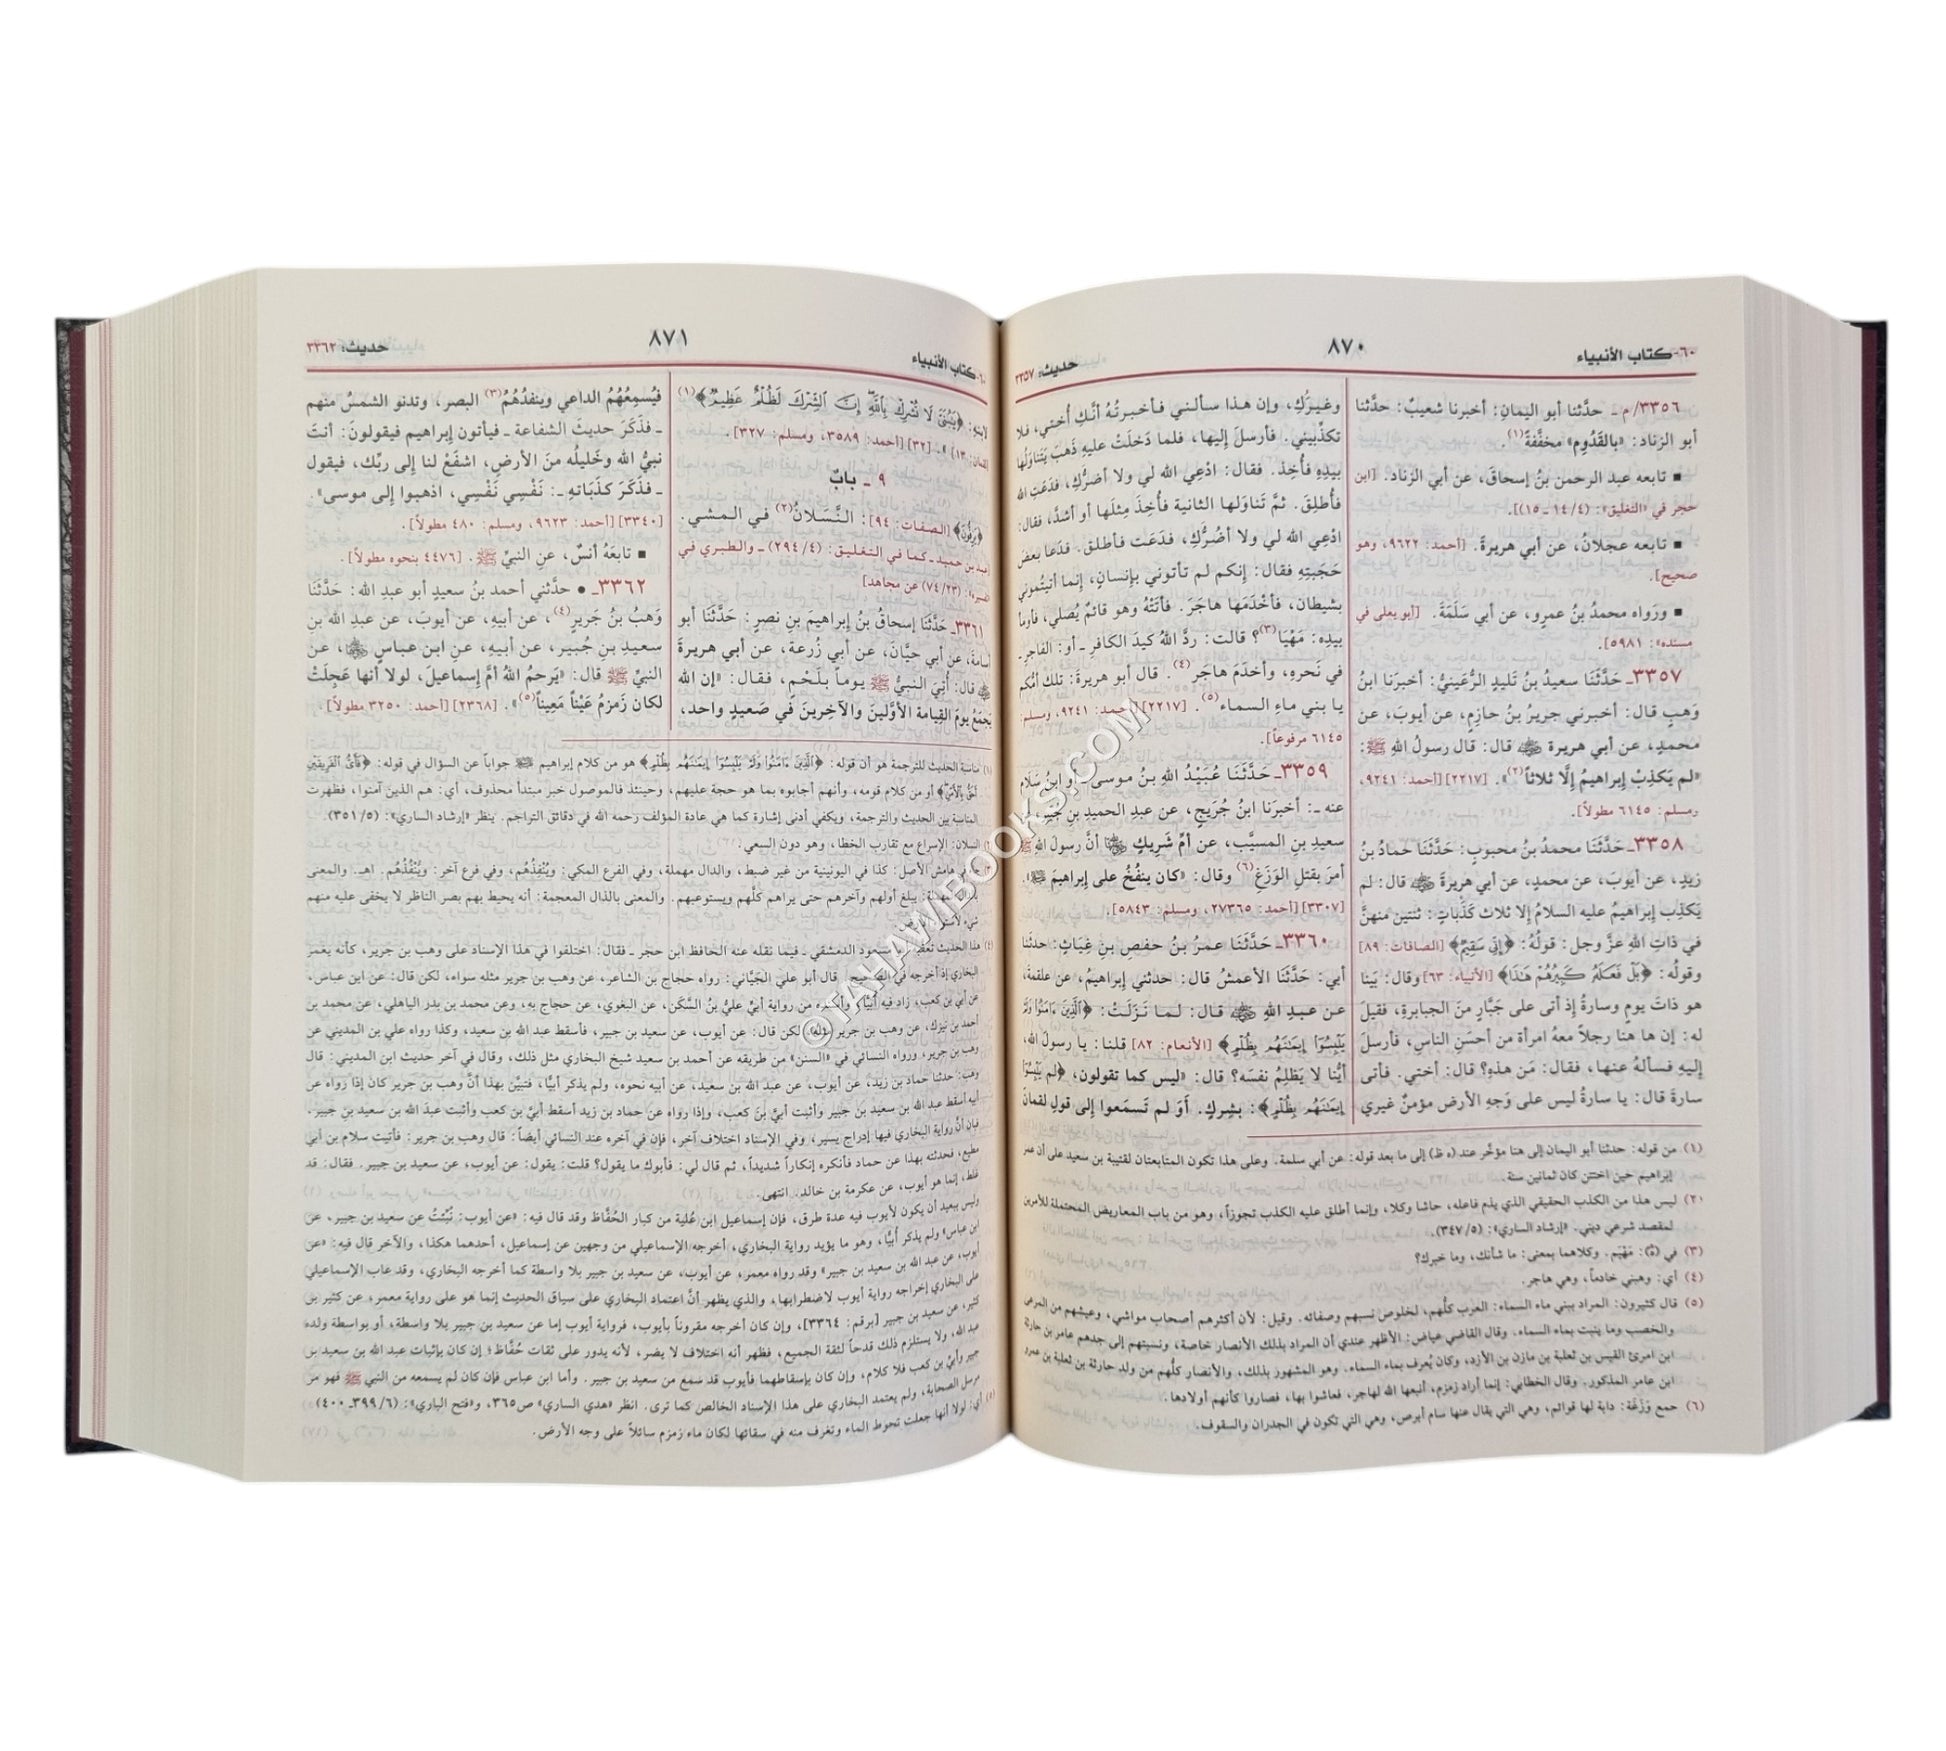 ٦٠- كتاب الأنبياء
٨٧٠
حديث: ٣٣٥٧
٣٣٥٦/ م - حدَّثنا أبو اليمانِ: أخبرنا شعيبٌ: حدَّثنا
أبو الزناد: «بالقَدُومِ» مخفَّفةً(١).
■ تابعه عبد الرحمن بنُ إسحاقَ، عن أبي الزناد. [ابن
حجر في «التغليق»: (٤/ ١٤ - ١٥)].
■ تابعه عجلانُ، عن أبي هريرةَ. [أحمد: ٩٦٢٢، وهو
صحيح].
■ ورَواه محمدُ بنُ عمرٍو، عن أبي سَلَمَةَ. [أبو يعلى في
مسنده: ٥٩٨١].
٣٣٥٧- حَدَّثَنَا سعيدُ بنُ تَليدٍ الرُّعَينيُّ: أخبرَنا ابنُ
وَهبٍ قال: أخبرني جريرُ بنُ حازمٍ، عن أيوبَ، عن
محمدٍ، عن أبي هريرة ﷺ قال: قال رسولُ اللهِ ﷺ:
«لم يَكذِبْ إبراهيمُ إلَّا ثلاثاً(٢)». [٢٢١٧] [أحمد: ٩٢٤١،
ومسلم: ٦١٤٥ مطولاً].
٣٣٥٨- حَدَّثَنَا محمدُ بنُ محبوبٍ: حَدَّثَنَا حمادُ بنُ
زيدٍ، عن أيوبَ، عن محمدٍ، عن أبي هريرةَ قال: لم
يَكذِب إبراهيمُ عليه السلامُ إلا ثلاث كَذَباتٍ: ثنتين منهنَّ
في ذاتِ اللهِ عزَّ وجل: قولُهُ: ﴿إِنِّي سَقِيمٌ﴾ [الصافات: ٨٩]
وقولُه: ﴿بَلْ فَعَلَهُ كَبِيرُهُمْ هَٰذَا﴾ [الأنبياء: ٦٣] وقال: بَينا
هو ذاتَ يومٍ وسارةُ إذ أتى على جَبَّارٍ منَ الجبابرةِ، فقيلَ
له: إن ها هنا رجلاً معهُ امرأة من أحسَنِ الناسِ، فأرسلَ
إليهِ فسألهُ عنها، فقال: مَن هذهِ؟ قال: أختي. فأتى
سارةَ قال: يا سارةُ ليس على وَجهِ الأرضِ مؤمنٌ غيري
وغيرُكِ، وإن هذا سألني فأخبرتُهُ أنَّكِ أختي، فلا
تكذِّبيني. فأرسلَ إليها، فلما دَخلَتْ عليهِ ذهَبَ يَتناوَلها
بيدِهِ فأُخِذ. فقال: ادْعِي الله لي ولا أضرُّكِ، فدَعَتِ الله
فأُطلِقَ. ثمَّ تَناوَلها الثانيةَ فأُخِذَ مِثلَها أو أشدَّ، فقال:
ادْعِي الله لي ولا أضُرُّكِ، فدَعَت فأطلق. فدَعَا بعضَ
حَجَبَتِهِ فقال: إنكم لم تأتوني بإنسانٍ، إنما أتيتُموني
بشيطان، فأخْدَمَها هاجَرَ. فأتَتْهُ وهو قائمٌ يُصلي، فأومأ
بيدِه: مَهْيَا(٣)؟ قالت: ردَّ اللهُ كيدَ الكافرِ - أو: الفاجرِ -
في نَحرهِ، وأخدَمَ هاجَر(٤). قال أبو هريرةَ: تلك أمُّكم
يا بني ماءِ السماء(٥). [٢٢١٧] [أحمد: ٩٢٤١، ومسلم:
٦١٤٥ مرفوعاً].
٣٣٥٩- حَدَّثَنَا عُبَيْدُ اللهِ بنُ موسى، أو ابنُ سَلَام
عنه -: أخبرَنا ابنُ جُرَيجٍ، عن عبدِ الحميدِ بنِ جُبَير، عن
سعيدِ بنِ المسيَّب، عن أمِّ شَريكٍ أنَّ رسولَ اللهِ ﷺ
أمرَ بقتلِ الوَزَغِ(٦) وقال: «كان ينفُخُ على إبراهيمَ».
[٣٣٠٧] [أحمد: ٢٧٣٦٥، ومسلم: ٥٨٤٣].
٣٣٦٠- حَدَّثَنَا عمرُ بنُ حفصِ بنِ غِيَاثٍ: حدثنا
أبي: حَدَّثَنَا الأعمشُ قال: حدثني إبراهيمُ، عن علقمةَ،
عن عبدِ اللهِ قال: لما نَزَلَتْ: ﴿الَّذِينَ ءَامَنُوا وَلَمْ
يَلْبِسُوٓا إِيمَٰنَهُم بِظُلْمٍ﴾ [الأنعام: ٨٢] قلنا: يا رسولَ الله،
أيُّنا لا يَظلِمُ نفسَه؟ قال: «ليس كما تقولون، ﴿لَمْ يَلْبِسُوٓا
إِيمَٰنَهُم بِظُلْمٍ﴾: بشِركٍ. أَوَ لم تَسمَعوا إلى قولِ لقمانَ
(١) من قوله: حدثنا أبو اليمان إلى هنا مؤخّر عند (ه ظ) إلى ما بعد قوله: عن أبي سلمة. وعلى هذا تكون المتابعتان لقتيبة بن سعيد على أن عمر
إبراهيم حين اختتن كان ثمانين سنة.
(٢) ليس هذا من الكذب الحقيقي الذي يذم فاعله، حاشا وكلا، وإنما أطلق عليه الكذب تجوزاً، وهو من باب المعاريض المحتملة للأمرين
لمقصد شرعي ديني. «إرشاد الساري»: (٥/ ٣٤٧).
(٣) في : مَهْيَم. وكلاهما بمعنى: ما شأنك، وما خبرك؟
(٤) أي: وهبني خادماً، وهي هاجر.
(٥) قال كثيرون: المراد ببني ماء السماء: العرب كلُّهم، لخلوص نسبهم وصفائه. وقيل: لأن أكثرهم أصحاب مواشي، وعيشهم من المرعى
والخصب وما ينبت بماء السماء. وقال القاضي عياض: الأظهر عندي أن المراد بذلك الأنصار خاصة، ونسبتهم إلى جدهم عامر بن حارثة
ابن امرئ القيس بن ثعلبة بن مازن بن الأزد، وكان يُعرف بماء السماء. وهو المشهور بذلك، والأنصار كلُّهم من ولد حارثة بن ثعلبة بن عمرو
ابن عامر المذكور. وقال الخطابي: إنما أراد زمزم، أنبعها الله لهاجر، فعاشوا بها، فصاروا كأنهم أولادها.
(٦) جمع وَزَغَة: دابة لها قوائم، وهي التي يقال عنها سام أبرص، وهي التي تكون في الجدران والسقوف.
٦٠- كتاب الأنبياء
٨٧١
حديث: ٣٣٦٢
لابنِهِ: ﴿يَٰبُنَيَّ لَا تُشْرِكْ بِاللَّهِ إِنَّ الشِّرْكَ لَظُلْمٌ عَظِيمٌ﴾(١)
[لقمان: ١٣]». [٣٢] [أحمد: ٣٥٨٩، ومسلم: ٣٢٧].
٩ - بابٌ
﴿يَزِفُّونَ﴾ [الصافات: ٩٤]: النَّسَلانُ(٢) في المشي.
[عبد بن حميد - كما في التغليق: (٤/ ٢٩٤) - والطبري في
تفسيره: (٢٣/ ٧٤) عن مجاهد]
٣٣٦١- حَدَّثَنَا إسحاقُ بنُ إبراهيمَ بنِ نصرٍ: حَدَّثَنَا أبو
أسامةَ، عن أبي حيَّانَ، عن أبي زُرعةَ، عن أبي هريرةَ
قال: أُتِيَ النبيُّ ﷺ يوماً بلَحْمٍ، فقال: «إن الله
يَجمَعُ يومَ القِيامةِ الأوَّلينَ والآخِرينَ في صَعيدٍ واحد،
فيُسمِعُهُمُ الداعي وينفدُهُمُ(٣) البصر، وتدنو الشمسُ منهم
- فذَكَرَ حديثَ الشفاعة - فيأتون إبراهيم فيقولونَ: أنتَ
نبيُّ الله وخَليلُه منَ الأرضِ، اشفَعْ لنا إلى ربِّك، فيقول
- فذَكَرَ كذَبَاتهِ -: نَفْسِي نَفْسِي، اذهبوا إلى موسى».
[٣٣٤٠] [أحمد: ٩٦٢٣، ومسلم: ٤٨٠ مطولاً].
■ تابعَهُ أنسٌ، عنِ النبيِّ ﷺ. [٤٤٧٦ بنحوه مطولاً].
٣٣٦٢- • حدَّثني أحمد بنُ سعيدٍ أبو عبدِ الله: حَدَّثَنَا
وَهبُ بنُ جَريرٍ(٤)، عن أبيهِ، عن أيوبَ، عن عبدِ الله بنِ
سعيدِ بنِ جُبيرٍ، عن أبيه، عنِ ابنِ عباسٍ، عنِ
النبيِّ ﷺ قال: «يَرحمُ اللهُ أمَّ إسماعيلَ، لولا أنها عَجِلَتْ
لكان زَمزمُ عَيْناً مَعِيناً(٥)». [٢٣٦٨] [أحمد: ٣٢٥٠ مطولاً].
(١) مناسبة الحديث للترجمة هو أن قوله: ﴿الَّذِينَ ءَامَنُوا وَلَمْ يَلْبِسُوٓا إِيمَٰنَهُم بِظُلْمٍ﴾ هو من كلام إبراهيم جواباً عن السؤال في قوله: ﴿فَأَيُّ الْفَرِيقَيْنِ
أَحَقُّ بِالْأَمْنِ﴾ أو من كلام قومه، وأنهم أجابوه بما هو حجة عليهم، وحينئذ فالموصول خبر مبتدأ محذوف، أي: هم الذين آمنوا، فظهرت
المناسبة بين الحديث والترجمة، ويكفي أدنى إشارة كما هي عادة المؤلف رحمه الله في دقائق التراجم. ينظر «إرشاد الساري»: (٥/ ٣٥١).
النسلان: الإسراع مع تقارب الخطا، وهو دون السعي.
في هامش الأصل: كذا في اليونينية من غير ضبط، والدال مهملة، وفي الفرع المكي: ويُنْفِذُهُم، وفي فرع آخر: ويُنْفُذُهُم. اهـ. والمعنى
بالدال المهملة: يبلغ أولهم وآخرهم حتى يراهم كلَّهم ويستوعبهم. والمعنى بالذال المعجمة: أنه يحيط بهم بصر الناظر لا يخفى عليه منهم
شيء لاستواء
(٤) هذا الحديث تعقبه أبو مسعود الدمشقي - فيما نقله عنه الحافظ ابن حجر - فقال: اختلفوا في هذا الإسناد على وهب بن جرير، كأنه يغمر
البخاري إذ أخرجه في الصحيح. قال أبو علي الجَيَّاني: رواه حجاج بن الشاعر، عن وهب بن جرير مثله سواء، لكن قال: عن ابن عباس،
عن أبي بن كعب، زاد فيه أبيًّا. وأسنده من رواية أبي عليِّ بنُ السَّكَن، عن البغوي، عن حجاج به، وعن محمد بن بدر الباهلي، عن محمد بن
أحمد بن نيزك، عن وهب بن جرير مثله، لكن قال: عن أيوب، عن سعيد بن جبير، فأسقط عبد الله بن سعيد، وكذا رواه علي بن المديني عن
وهب بن جرير، ورواه النسائي في «السنن» من طريقه عن أحمد بن سعيد شيخ البخاري مثل ذلك، وقال في آخر حديث ابن المديني: قال
وهب: حدثنا حماد بن زيد، عن أيوب، عن عبد الله بن سعيد، عن أبيه نحوه، ولم يذكر أبيًّا، فتبيَّن بهذا أنَّ وهب بن جرير كان إذا رواه عن
أبيه أسقط عبد الله بن سعيد بن جبير وأثبت أبيَّ بن كعب، وإذا رواه عن حماد بن زيد أسقط أبيَّ بن كعب وأثبت عبدَ الله بن سعيد بن جبير.
فبان أنَّ رواية البخاري فيها إدراج يسير، وفي الإسناد اختلاف آخر، فإن في آخره عند النسائي أيضاً: قال وهب بن جرير: فأتيت سلام بن أبي
مطيع، فحدثته بهذا عن حماد فأنكره إنكاراً شديداً، ثم قال لي: فأبوك ما يقول؟ قلت: يقول: عن أيوب، عن سعيد بن جبير. فقال: قد
غلط، إنما هو أيوب، عن عكرمة بن خالد. انتهى.
وليس ببعيد أن يكون لأيوب فيه عدة طرق، فإن إسماعيل ابن عُلية من كبار الحُفَّاظ وقد قال فيه: «عن أيوب: نُبِّئتُ عن سعيد بن جبير، عن
ابن عباس» ولم يذكر أُبيًّا، وهو ما يؤيد رواية البخاري، أخرجه الإسماعيلي من وجهين عن إسماعيل، أحدهما هكذا، والآخر قال فيه: «عن
أيوب، عن عبد الله بن سعيد بن جبير» وقد رواه معمر، عن أيوب، عن سعيد بن جبير بلا واسطة كما أخرجه البخاري، وقد عاب الإسماعيلي
على البخاري إخراجه رواية أيوب لاضطرابها، والذي يظهر أنَّ اعتماد البخاري على سياق الحديث إنما هو على رواية معمر، عن كثير بن
كثير، عن سعيد بن جبير [برقم: ٣٣٦٤]، وإن كان أخرجه مقروناً بأيوب، فرواية أيوب إما عن سعيد بن جبير بلا واسطة، أو بواسطة ولده
عبد الله، ولا يستلزم ذلك قدحاً لثقة الجميع، فظهر أنه اختلاف لا يضر، لأنه يدور على ثقات حُفَّاظ؛ إن كان بإثبات عبد الله بن سعيد بن
جبير وأبيِّ بن كعب فلا كلام، وإن كان بإسقاطهما فأيوب قد سمع من سعيد بن جبير. وأما ابن عباس فإن كان لم يسمعه من النبي ﷺ فهو من
مرسل الصحابة، ولم يعتمد البخاري على هذا الإسناد الخالص كما ترى. انظر «هدي الساري» ص٣٦٥، و«فتح الباري»: (٦/ ٣٩٩- ٤٠٠)
(٥) أي: لولا أنها جعلت تحوط الماء وتغرف منه في سقائها لكان ماء زمزم سائلاً على وجه الأرض.
©TAHAWIBOOKS.COM